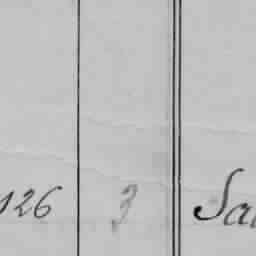 126 3 Sa